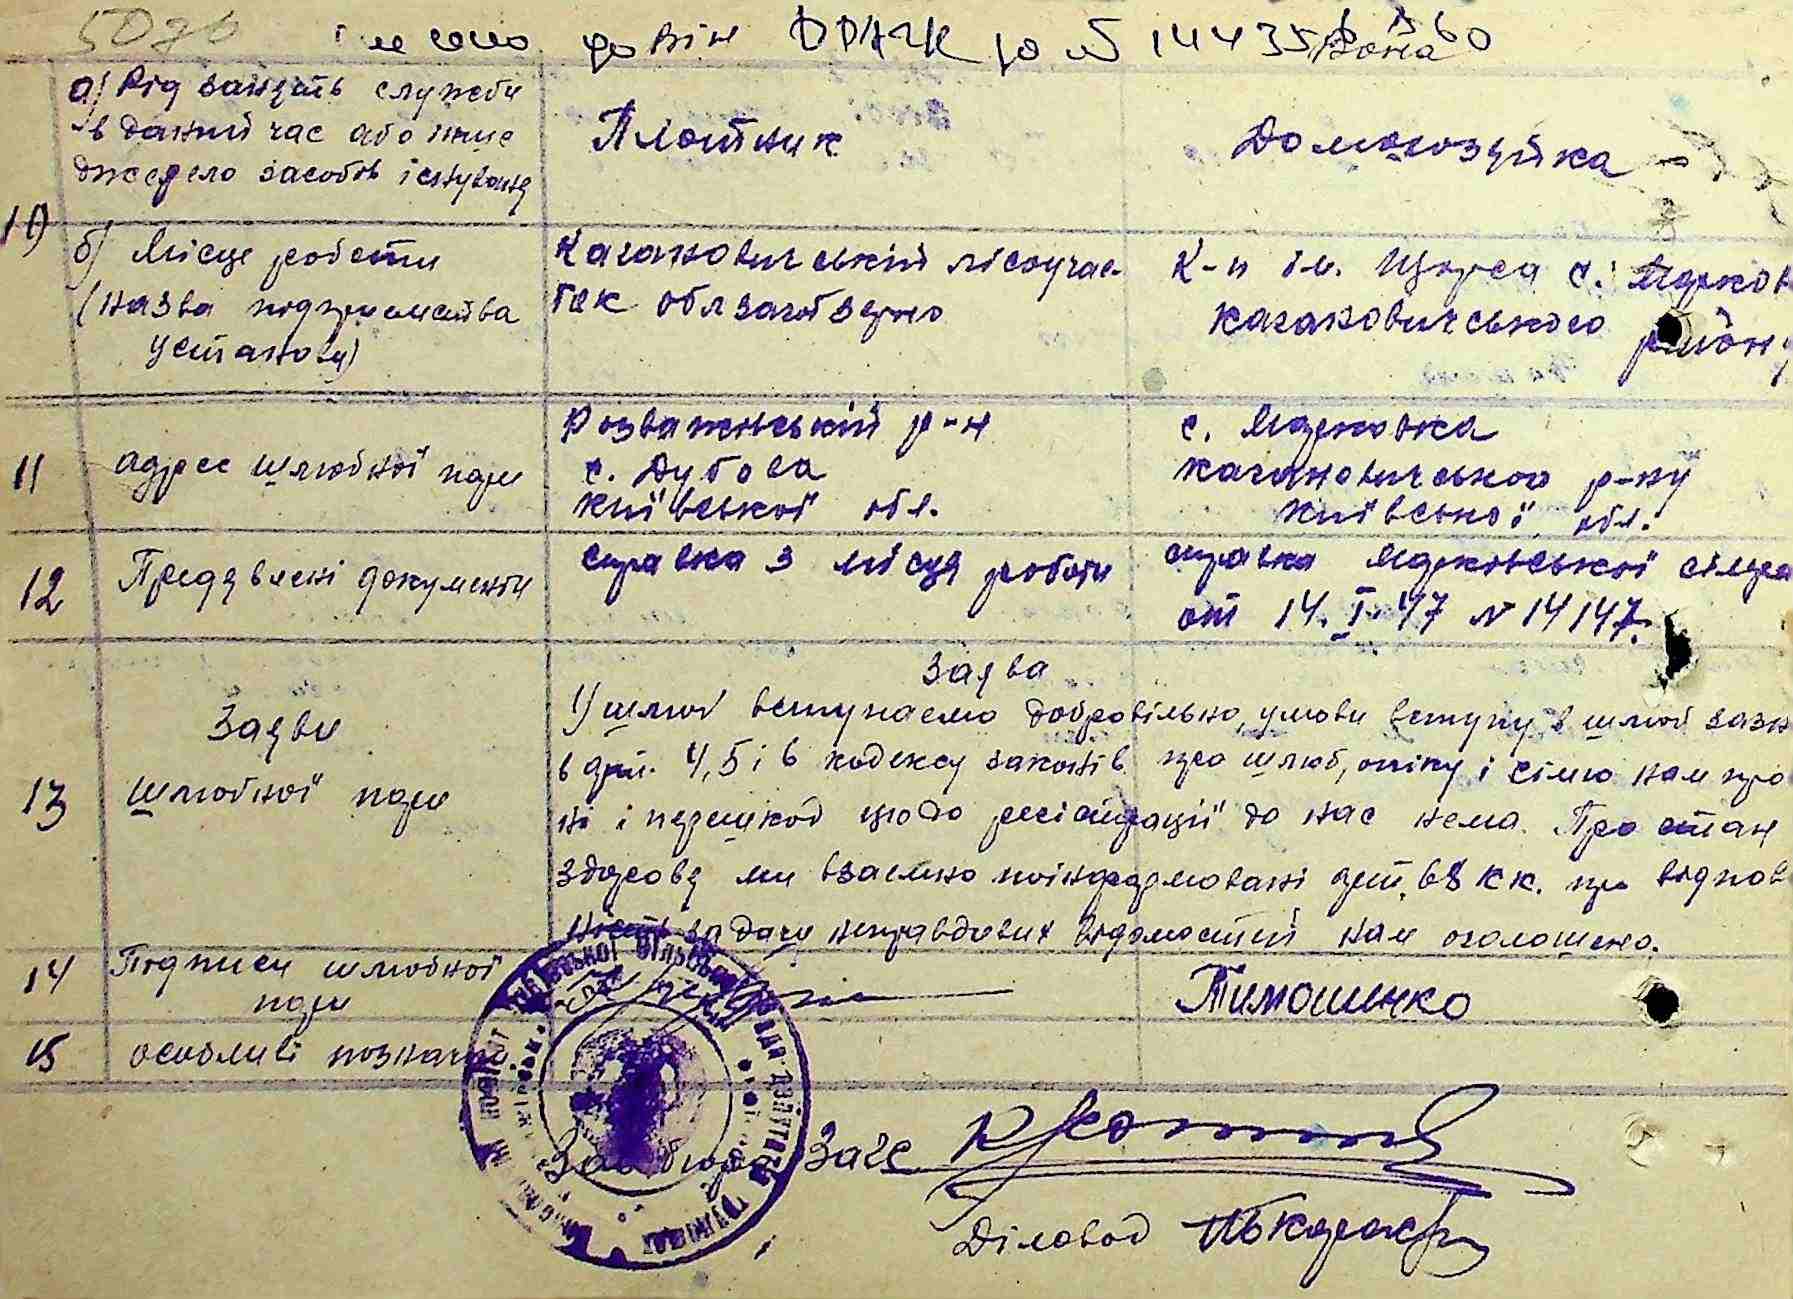 5070
довін
Вона
10
а) Від занять служби
в даний час або інше
джерело засобів існування
Плотник
Домохозяйка
б) Місце роботи
(назва підприємства
установи)
Кагановичський лісоучас-
ток облзаготзерно
К-п ім. Щорса с. Марков
кагановичського району
11
адрес шлюбної пари
Розважівський р-н
с. Дубова
київської обл.
с. Марковка
кагановичського р-ну
київської обл.
12
Предявлені документи
справка з місця роботи
справка Марковської сільра
от 14.I.47 N 14147.
13
Заяви
шлюбної пари
Заява
1) шлюб вступаємо добровільно, умови вступу в шлюб зазн
в арт. 4,5 і 6 кодексу законів про шлюб, опіку і сімю нам про
ні і перешкод щодо реєстрації до нас нема. Про стан
здоровя ми взаємно поінформовані арт. 68 КК. про відпов
ність за дачу неправдивих відомостей нам оголошено.
14
Підписи шлюбної
пари
Тимошенко
15
особливі позначки
Зав бюро Загс
Діловод